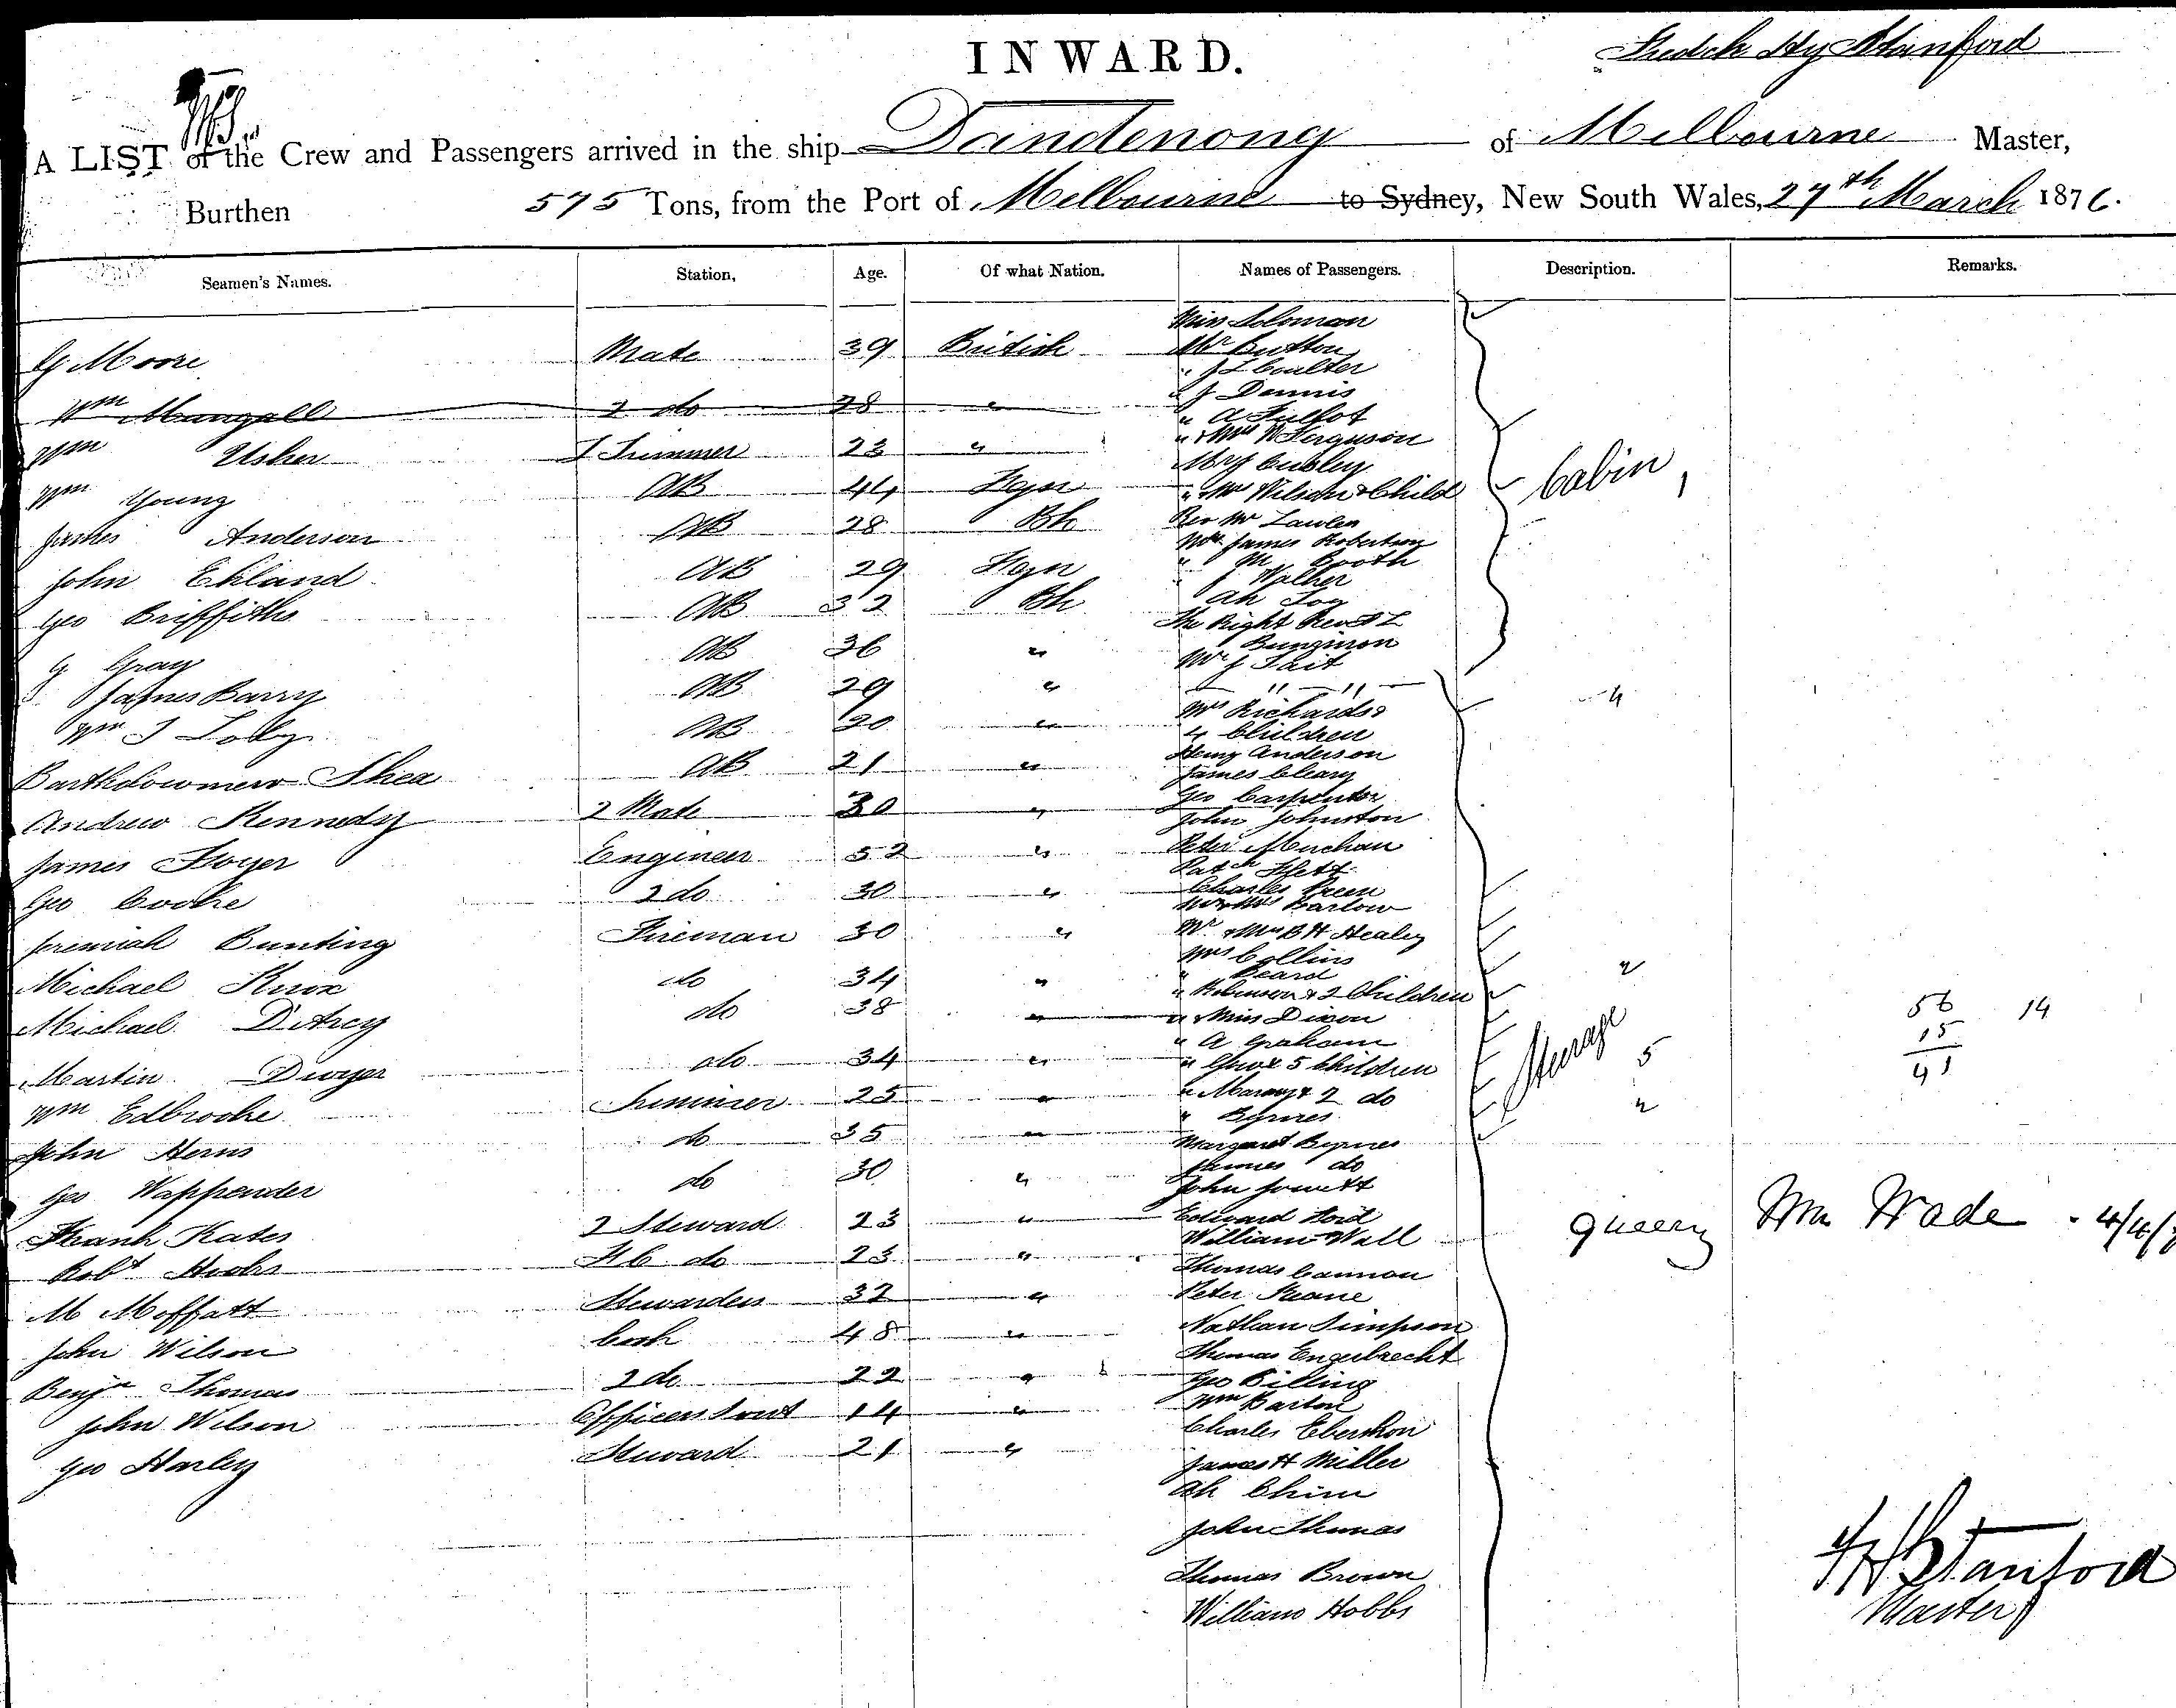 INWARD.
Fredck Hy Stanford
A LIST of the Crew and Passengers arrived in the ship Dandenong of Melbourne Master,
Burthen 575 Tons, from the Port of Melbourne to Sydney, New South Wales, 27th March 1876.
Seamen's Names. Station, Age. Of what Nation. Names of Passengers. Description. Remarks.
G Moore Mate 39 British
Wm Mungall 2 do 28 "
Wm Usher Trimmer 23 "
Wm Young AB 44 Forgn
James Anderson AB 28 Bh
John Ekland AB 29 Forgn
Geo Griffiths AB 32 Bh
G Gray AB 36 "
James Barry AB 29 "
Wm J AB 20 "
Bartholowmew Shea AB 21 "
Andrew Kennedy 2 Mate 30 "
James Engineer 52 "
Geo Cooke 2 do 30 "
Jeremiah Bunting Fireman 30 "
Michael Knox do 34 "
Michael D'Arcy do 38 "
Martin Dwyer do 34 "
Wm Edbrooke Trimmer 25 "
John Herns do 35 "
Geo Wappender do 30 "
Frank Kates 2 Steward 23 "
Robt Hicks do 23 "
M Moffatt Stewardess 32 "
John Wilson Cook 48 "
Benjn Thomas 2 do 22 "
John Wilson Officers Servt 14 "
Geo Harley Steward 21 "
Miss Soloman
Mr Button
" J L Coulter
" J Dennis
" A
" & Mrs W Ferguson
Mr J
" Mr Wilson & Child
Rev Mr Lawlen
Mr James Robertson
" M Booth
" J Walker
Ah
The Right Revd L
Bunginon
Mr J Tait
" "
Mrs Richards &
4 Children
Henry Anderson
James Cleary
Geo Carpenter
John Johnston
Peter
Patck
Charles Green
Mr & Mrs Barlow
Mr & Mrs B H Healey
Mrs Collins
" Beard
" Robinson & 2 Children
" Miss Dixon
" A Graham
" & 5 Children
" & 2 do
" Byrnes
Margaret Byrnes
James do
John Jowett
Edward Ford
William Wall
Thomas Cannon
Peter Keane
Nathan Simpson
Thomas Engelbrecht
Geo Billing
Wm Barton
Charles
James H Miller
Ah Chim
John Thomas
Thomas Brown
William Hobbs
Cabin
4
2
Steerage
5
2
56 14
15
41
query Wm Wade 4/4/7
F H Stanford
Master